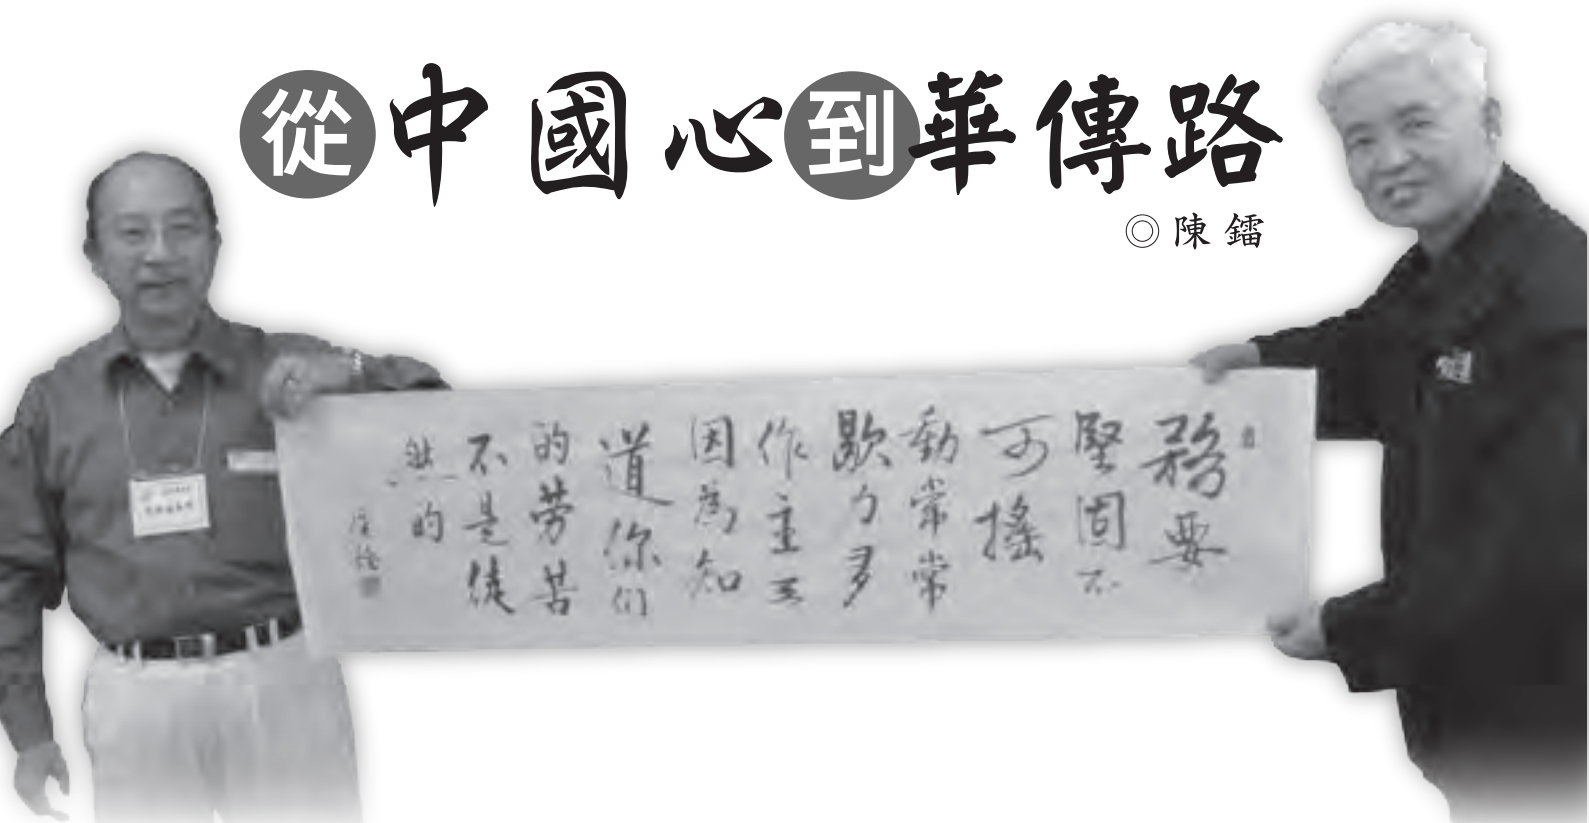 從中國心到華傳路
◎陳鐳
務要
堅固不
可搖
動常常
歇力多
作主工
因為知
道你们
的劳苦
不是徒
然的